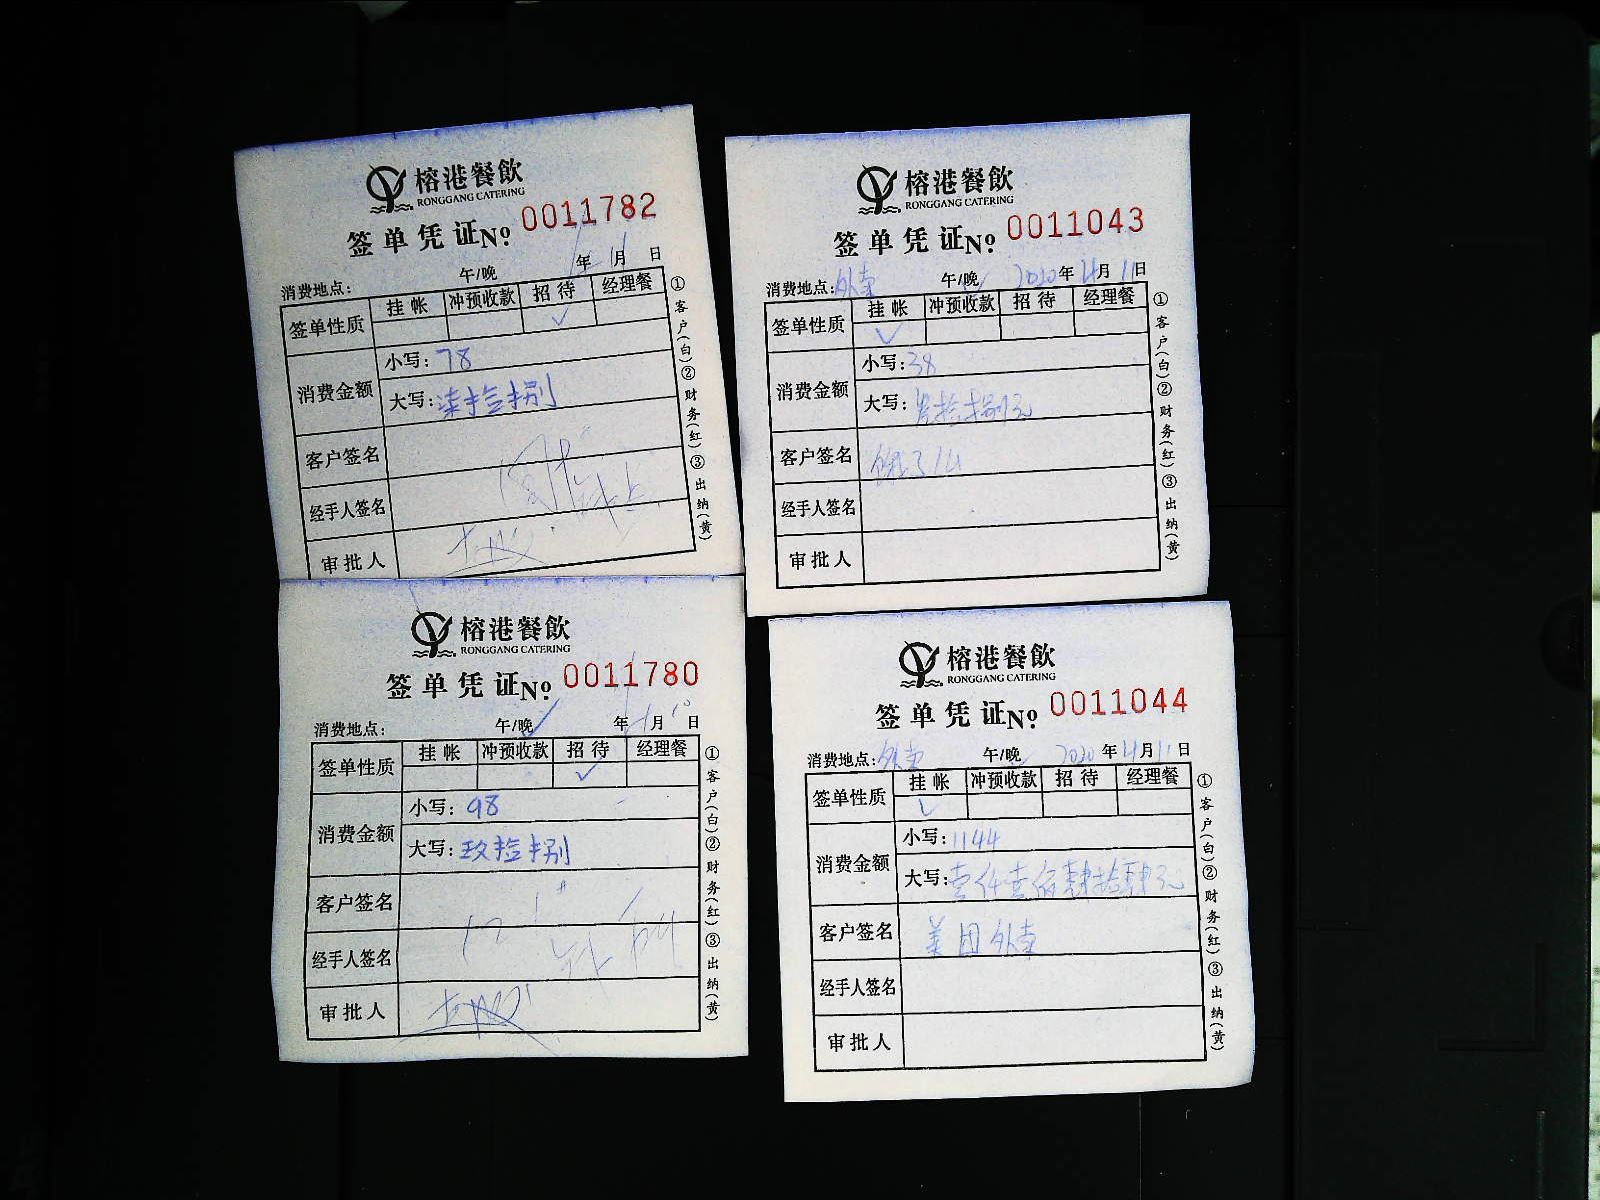 榕港餐飲
RONGGANG CATERING
签单凭证No 0011782
消费地点: 午/晚 年 月 日
签单性质 挂帐 冲预收款 招待 经理餐
✓
消费金额 小写: 78
大写: 柒拾捌
客户签名
经手人签名
审批人
①客户(白)②财务(红)③出纳(黄)
榕港餐飲
RONGGANG CATERING
签单凭证No 0011043
消费地点: 外卖 午/晚 2020年4月11日
签单性质 挂帐 冲预收款 招待 经理餐
✓
消费金额 小写: 38
大写: 叁拾捌元
客户签名 饿了么
经手人签名
审批人
①客户(白)②财务(红)③出纳(黄)
榕港餐飲
RONGGANG CATERING
签单凭证No 0011780
消费地点: 午/晚 年 月10日
签单性质 挂帐 冲预收款 招待 经理餐
✓
消费金额 小写: 98
大写: 玖拾捌
客户签名
经手人签名
审批人
①客户(白)②财务(红)③出纳(黄)
榕港餐飲
RONGGANG CATERING
签单凭证No 0011044
消费地点: 外卖 午/晚 2020年4月11日
签单性质 挂帐 冲预收款 招待 经理餐
✓
消费金额 小写: 1144
大写: 壹仟壹佰肆拾肆元
客户签名 美团外卖
经手人签名
审批人
①客户(白)②财务(红)③出纳(黄)